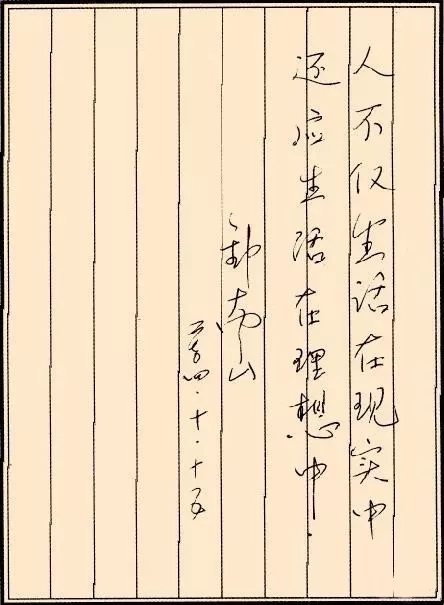 人不仅生活在现实中
还应生活在理想中.
钟南山
二〇〇四.十.十五